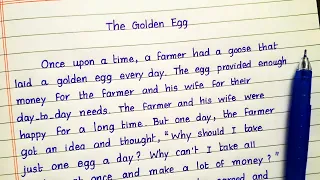 The Golden Egg
Once upon a time, a farmer had a goose that
laid a golden egg every day. The egg provided enough
money for the farmer and his wife for their
day-to-day needs. The farmer and his wife were
happy for a long time. But one day, the farmer
got an idea and thought, "Why should I take
just one egg a day? Why can't I take all
at once and make a lot of money?"
agreed and